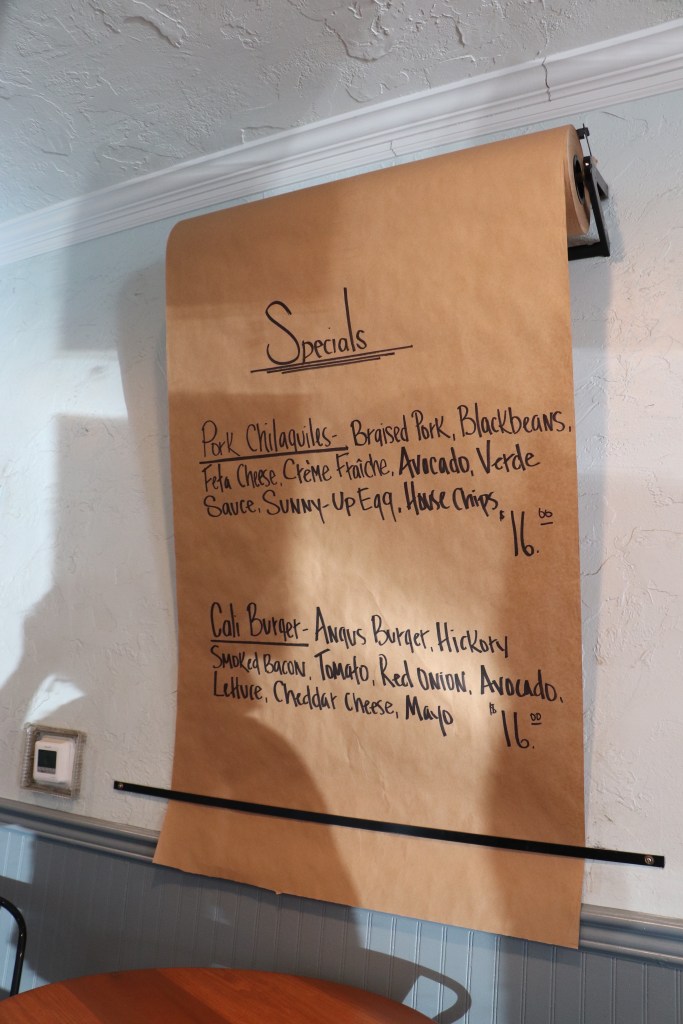 Specials
Pork Chilaquiles- Braised Pork, Blackbeans,
Feta Cheese, Crème Fraîche, Avocado, Verde
Sauce, Sunny-Up Egg, House Chips
$16.00
Cali Burger- Angus Burger, Hickory
Smoked Bacon, Tomato, Red Onion, Avocado,
Lettuce, Cheddar Cheese, Mayo $16.00